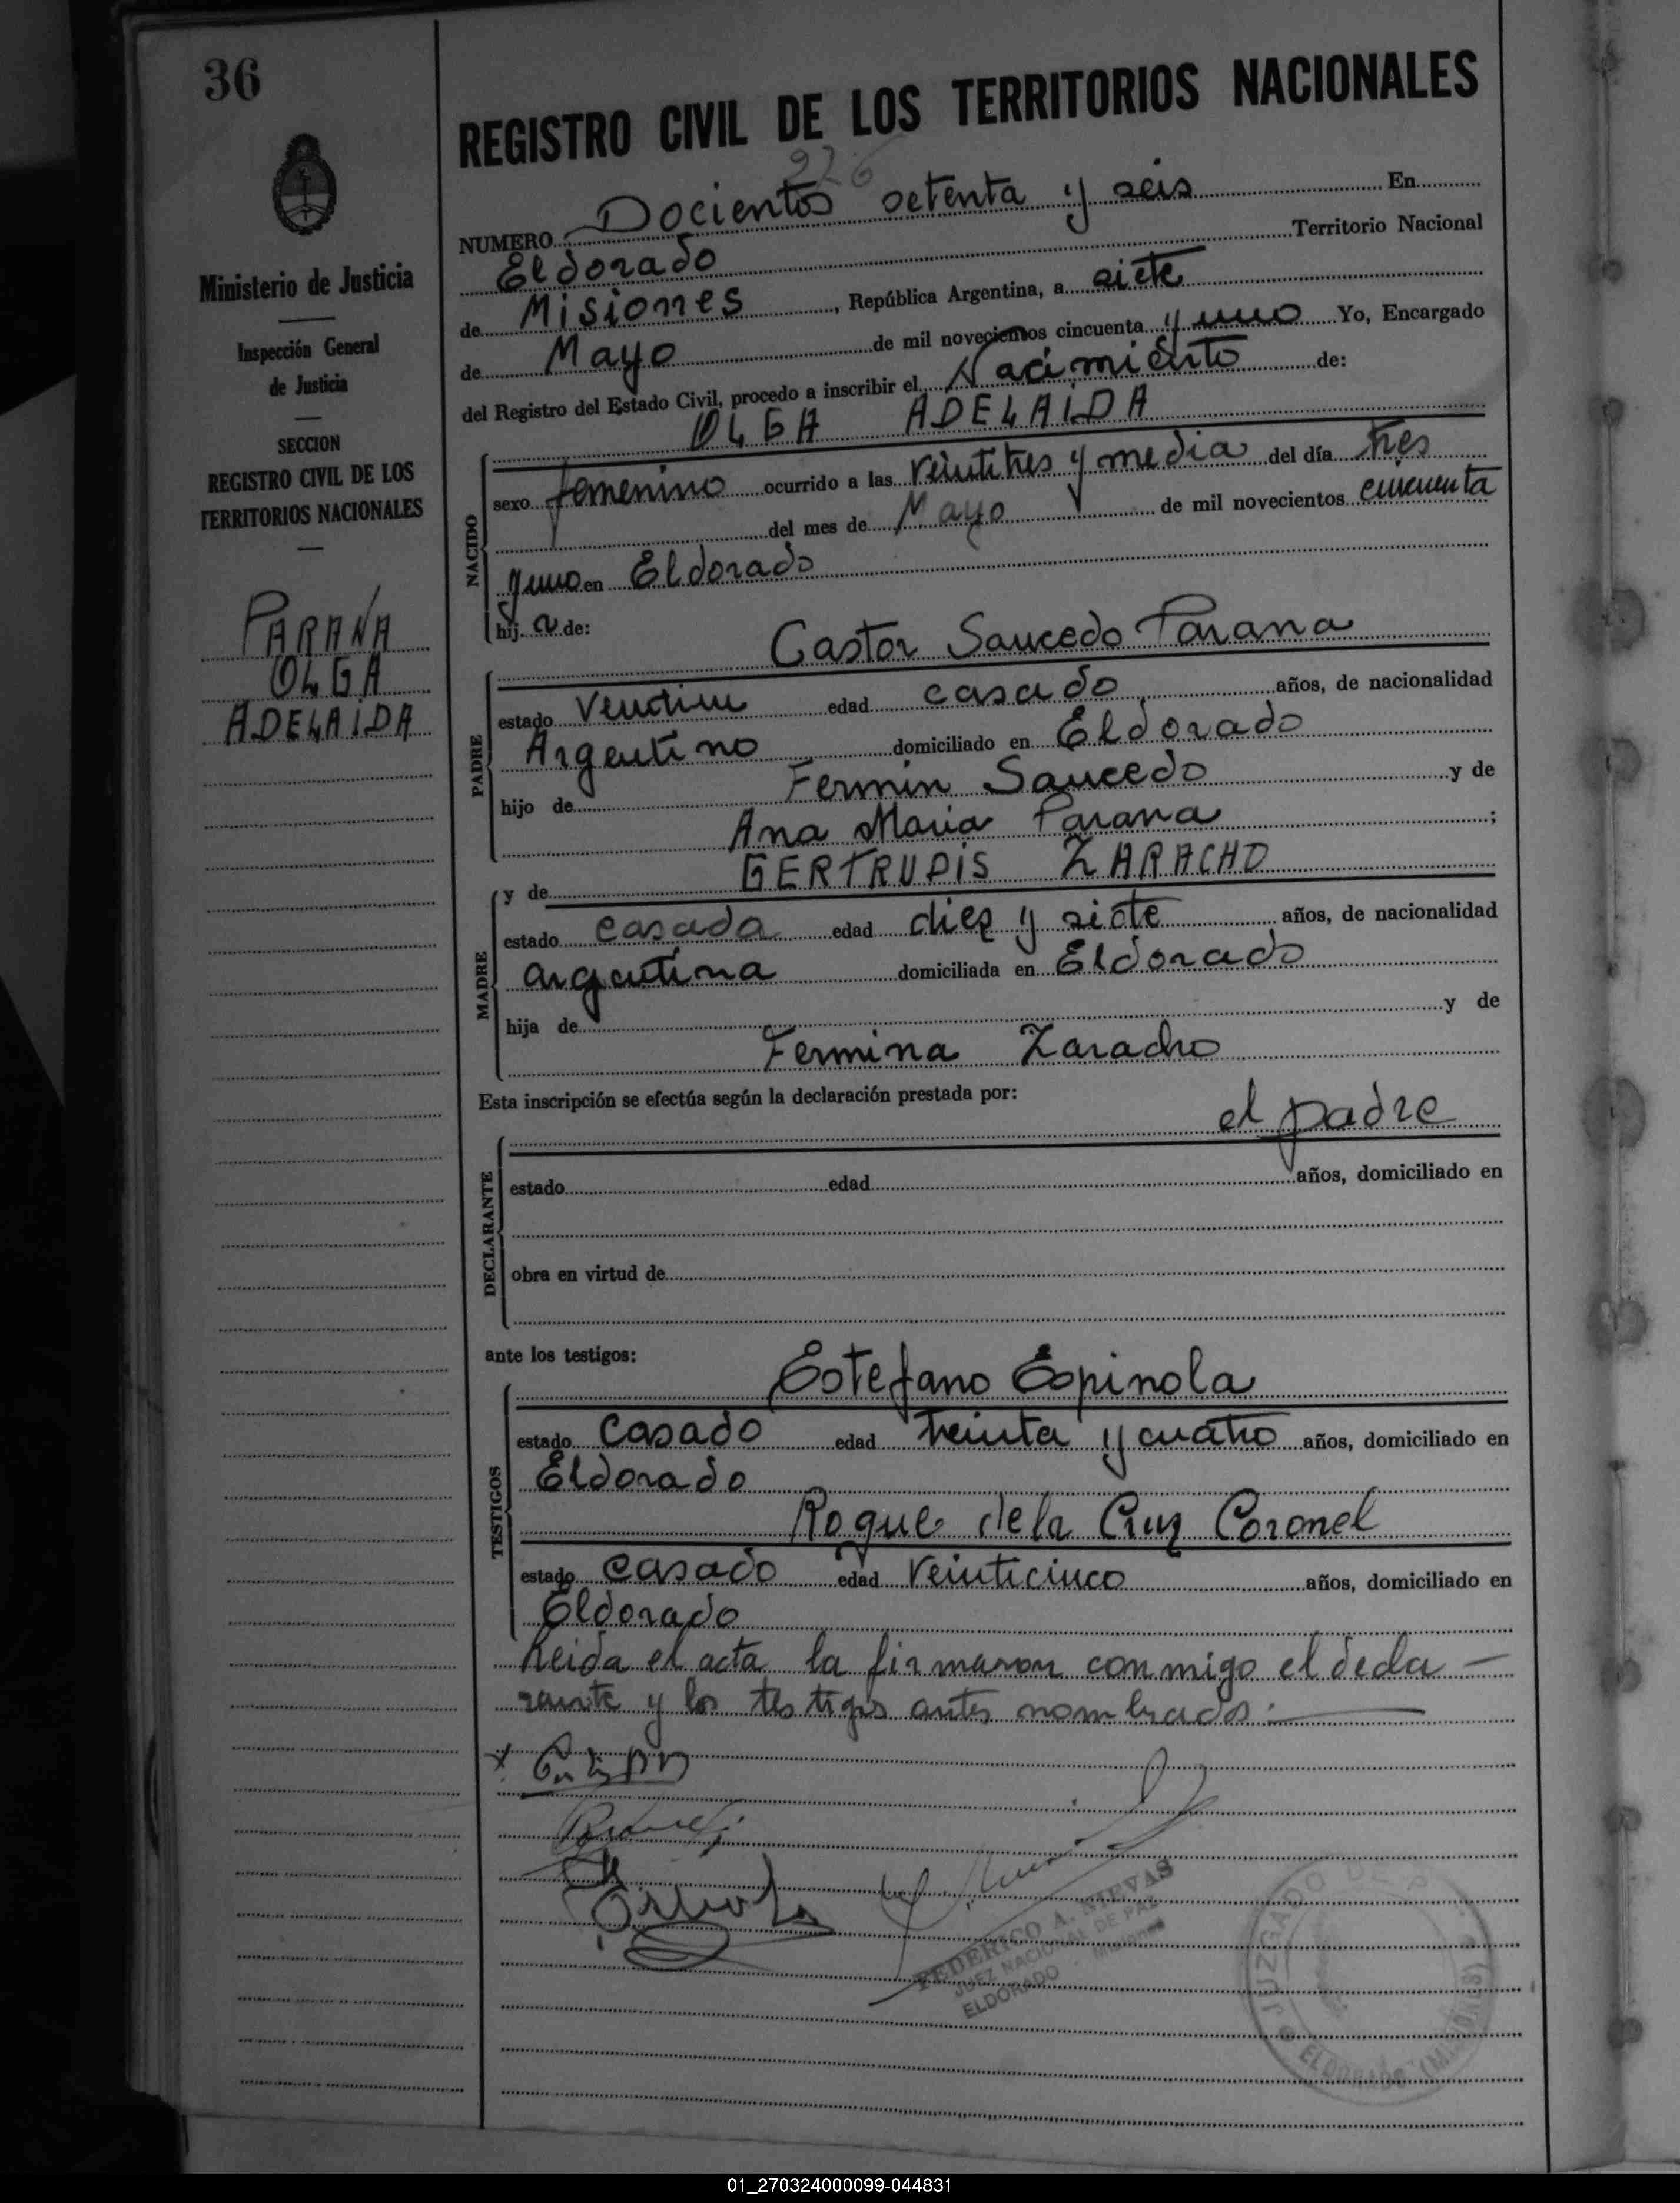 36
Ministerio de Justicia
Inspección General
de Justicia
SECCION
REGISTRO CIVIL DE LOS
TERRITORIOS NACIONALES
PARANA
OLGA
ADELAIDA
REGISTRO CIVIL DE LOS TERRITORIOS NACIONALES
276
NUMERO Docientos setenta y seis En
Eldorado Territorio Nacional
de Misiones, República Argentina, a siete
de Mayo de mil novecientos cincuenta y uno Yo, Encargado
del Registro del Estado Civil, procedo a inscribir el Nacimiento de:
OLGA ADELAIDA
NACIDO
sexo femenino ocurrido a las veintitres y media del día tres
del mes de Mayo de mil novecientos cincuenta
y uno en Eldorado
hij a de:
PADRE
Castor Saucedo Parana
estado edad casado años, de nacionalidad
Argentino domiciliado en Eldorado
hijo de Fermin Saucedo y de
Ana Maria Parana ;
MADRE
y de GERTRUDIS ZARACHO
estado casada edad diez y siete años, de nacionalidad
argentina domiciliada en Eldorado
hija de y de
Fermina Zaracho
Esta inscripción se efectúa según la declaración prestada por:
DECLARANTE
el padre
estado edad años, domiciliado en
obra en virtud de
ante los testigos:
TESTIGOS
Estefano Espinola
estado casado edad treinta y cuatro años, domiciliado en
Eldorado
Roque de la Cruz Coronel
estado casado edad veinticinco años, domiciliado en
Eldorado
Leida el acta la firmaron conmigo el decla-
rante y los testigos antes nombrados.
FEDERICO A. NIEVAS
JUEZ NACIONAL DE PAZ
ELDORADO - Misiones
JUZGADO DE P
ELDORADO (MISIONES)
01_270324000099-044831